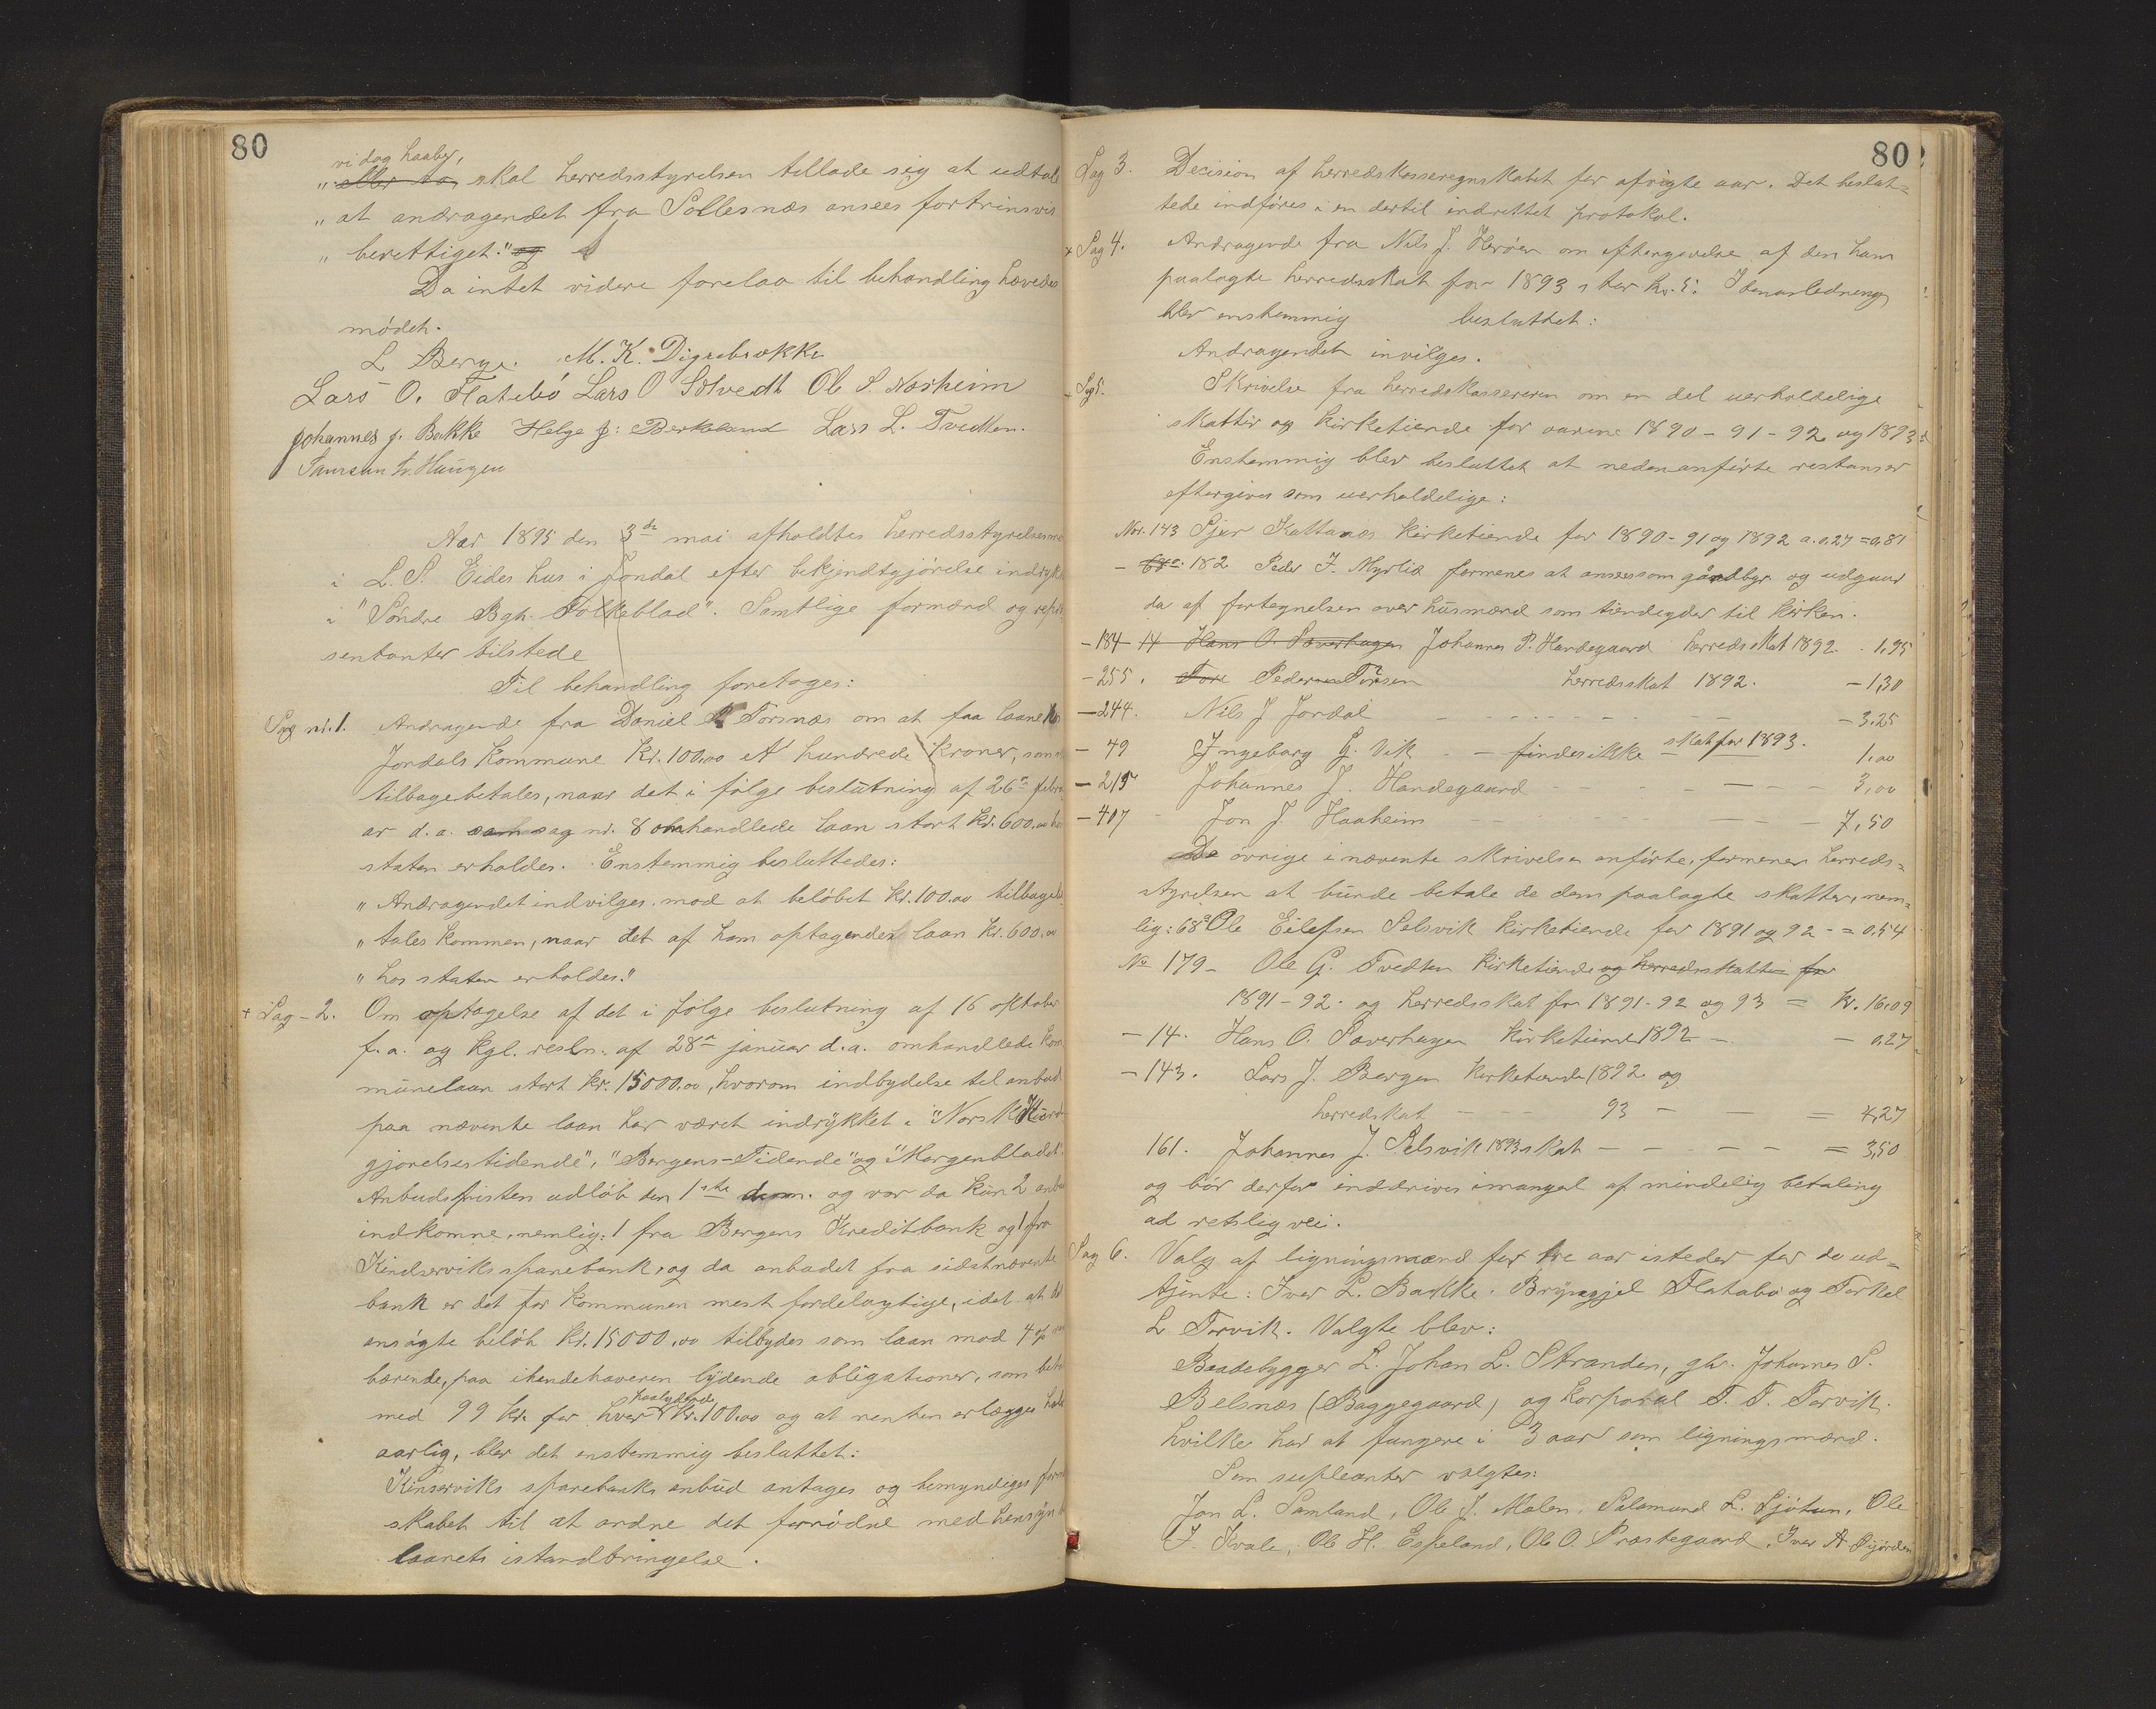 80
vi dog haaber,
" eller to skal herredsstyrelsen tillade sig at udtale
" at andragendet fra Sollesnæs ansees fortrinsvis
" berettiget." og
Da intet videre forelaa til behandling hævedes
mödet.
L Berge. M. K. Digrebrække
Lars O. Flatebö Lars O Solvedt Ole S. Næsheim
Johannes J. Bakke Helge J: Berkeland Lars L. Tvedten.
Samson Haugen
Aar 1895 den 3de mai afholdtes herredsstyrelsesmö
i L. S. Eides hus i Jondal efter bekjendtgjörelse indryk
i "Söndre Bgh. Folkeblad". Samtlige formænd og repræ
sentanter tilstede
Til behandling foretages:
Sag nr. 1. Andragende fra Daniel Torsnæs om at faa laane hos
Jondals kommune Kr. 100,00 et hundrede kroner, som
tilbagebetales, naar det i fölge beslutning af 26de febru
ar d.a. sag nr. 8 omhandlede laan stort kr. 600,00 hos
staten erholdes. Enstemmig besluttedes:
" Andragendet indvilges mod at belöbet kr. 100.00 tilbagebe
" tales kommen, naar det af ham optagendes laan kr. 600,00
" hos staten erholdes."
+ Sag - 2. Om optagelse af det i fölge beslutning af 16 oktober
f.a. og kgl. resln. af 28de januar d.a. omhandlede kom
munelaan stort kr. 15000.00, hvorom indbydelse til anbud
paa nævente laan har været indrykket i "Norsk Kund
gjorelsestidende", "Bergens-Tidende" og "Morgenbladet".
Anbudsfristen udlöb den 1ste dennes. og var da kun 2 anbud
indkomne, nemlig: 1 fra Bergens Kreditbank og 1 fra
Kindserviks sparebank, og da anbudet fra sidstnævente
bank er det for kommunen mest fordelagtige, idet at det
ansögte belöb kr. 15000,00 tilbydes som laan mod 4 %
bærende, paa ihendehaveren lydende obligationer, som beta
paalydende
med 99 kr. for hver kr. 100.00 og at renten erlægges halv
aarlig, blev det enstemmig besluttet:
Kinserviks sparebanks anbud antages og bemyndiges form
skabet til at ordne det fornödne med hensyn til
laanets istandbringelse.
80
Sag 3. Decision af herredskasseregnskabet for afvigte aar. Det beslut=
tede indföres i en dertil indrettet protokol.
+ Sag 4. Andragende fra Nils J. Heröen om eftergivelse af den ham
paalagte herredsskat for 1893 stor kr. 5. I den anledning
blev enstemmig besluttet:
Andragendet invilges.
Sag 5. Skrivelse fra herredskassereren om en del uerholdelige
skatter og kirketiende for aarene 1890 - 91 - 92 og 1893.
Enstemmig blev besluttet at nedenanförte restanser
eftergives som uerholdelige:
Nor. 143 Sjur Kattanæs kirketiende for 1890 - 91 og 1892 a. 0.27 = 0,81
- 182 Peder J. Myrlid formenes at ansees som gårdbgr. og udgaar
da af fortegnelsen over husmænd som tiendeyder til kirken.
- 184 - 14 Hans O. Saverhagen Johannes P. Handegaard herredsskat 1892. . 1,95
- 255. Tore Peder Torsen herredsskat 1892. - 1,30
- 244. Nils J Jordal - - - - - - - - = 3.25
- 49 Ingeborg G. Vik - - findes ikke skat for 1893. 1,00
- 215 Johannes J. Handegaard - - - - - - - 3,00
- 407 Jon J. Haaheim - - - - - - - 7,50
De övrige i nævente skrivelse anförte, formener herreds=
styrelsen at burde betale de dem paalagte skatter, nem=
lig: 68a Ole Eilefsen Selsvik kirketiende for 1891 og 92 - = 0,54
No 179 - Ole G. Tvedten kirketiende og herredsskatten for
1891 - 92. og herredsskat for 1891 - 92 og 93 = kr. 16,09
- 14. Hans O. Saverhagen kirketiende 1892 - - 0,27
- 143. Lars J. Bergen kirketiende 1892 og
herredskat - - - 93 - = 4,27
161. Johannes J. Selsvik 1893 skat - - - - - = 3,50
og bör derfor inddrives i mangel af mindelig betaling
ad retslig vei.
Sag 6. Valg af ligningsmænd for tre aar isteder for de ud=
tjente: Iver L. Bakke. Brynjjel Flatabö og Torkel
L Torvik. Valgte blev:
Baadebygger L. Johan L. Stranden, gbr. Johannes S.
Belsnes (Baggegaard) og korporal T. T. Torvik.
hvilke har at fungere i 3 aar som ligningsmænd.
Som supleanter valgtes:
Jon L. Samland, Ole J. Malen, Salamund L. Ljötun, Ole
J. Kvale, Ole H. Espeland, Ole O. Præstegaard, Iver A.